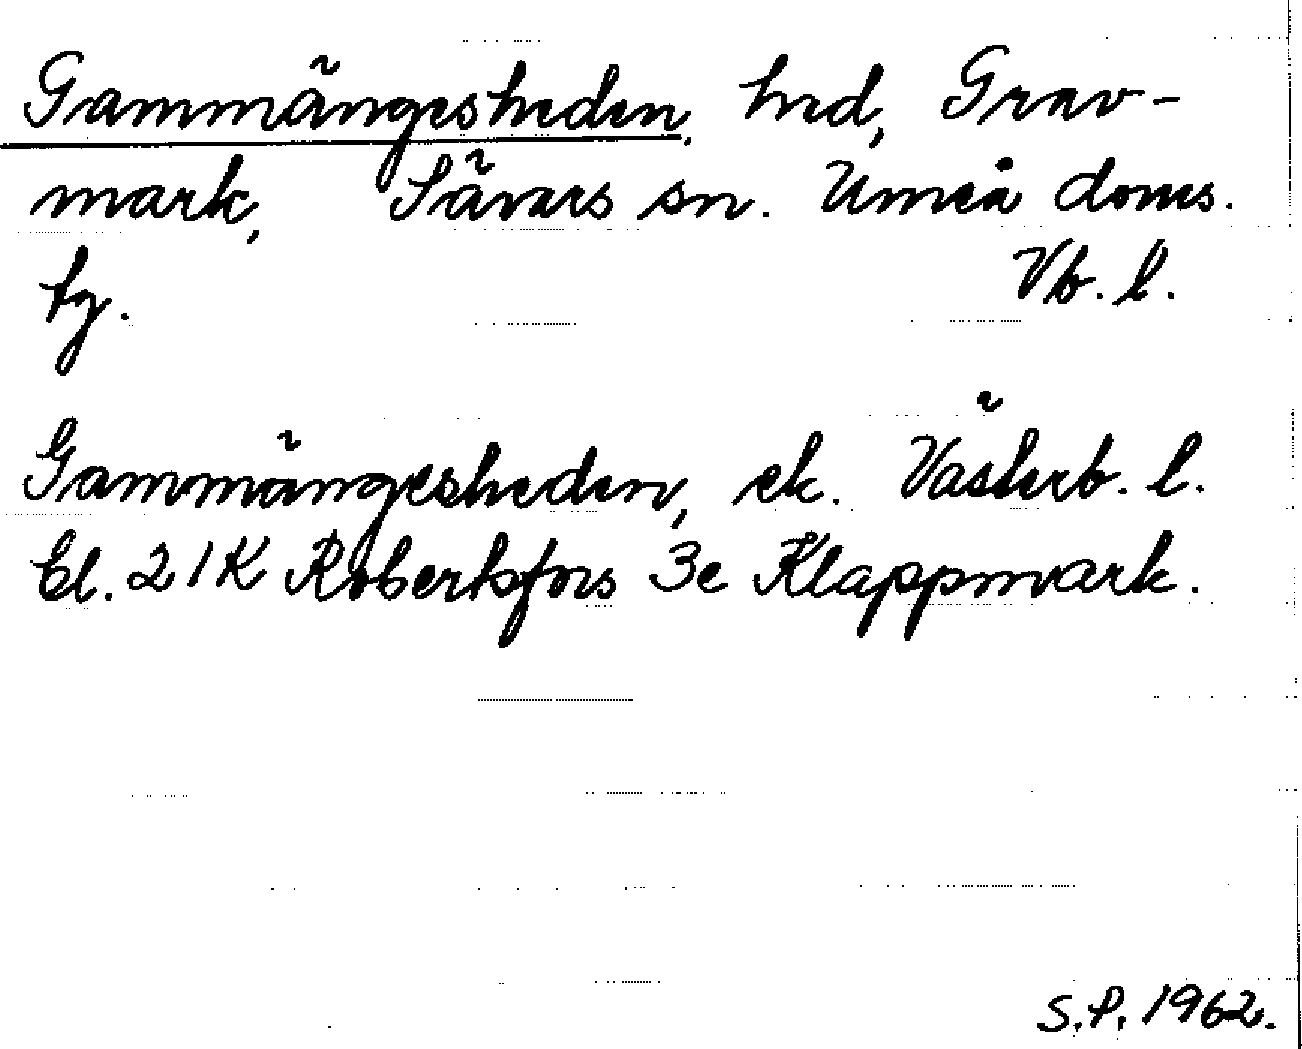 Gammängesheden, hed, Grav-
mark, Sävars sn. Umeå doms.
tg. Vb. l.
Gammängesheden, ek. Västerb. l.
Bl. 21K Robertsfors 3e Klappmark.
S.P. 1962.